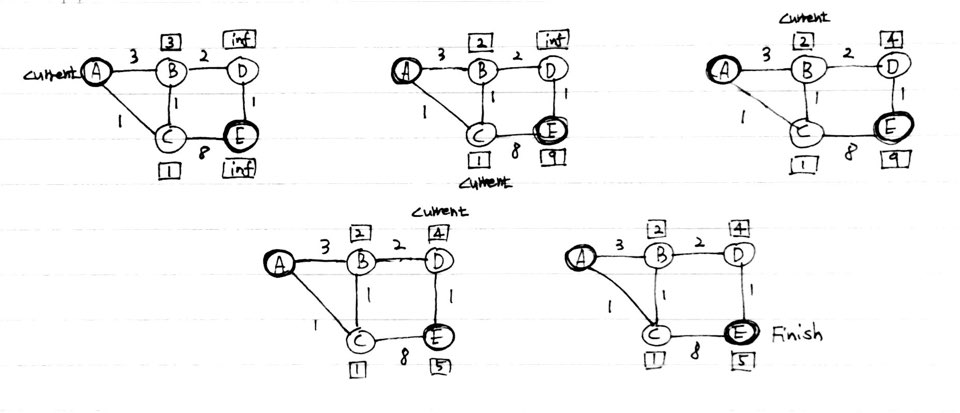 current A 3 3 B 2 inf D
1 1 1
C 8 E
1 inf
A 3 2 B 2 inf D
1 1 1
C 8 E
1 9
current
current
A 3 2 B 2 4 D
1 1 1
C 8 E
1 9
current
A 3 2 B 2 4 D
1 1 1
C 8 E
1 5
A 3 2 B 2 4 D
1 1 1
C 8 E Finish
1 5